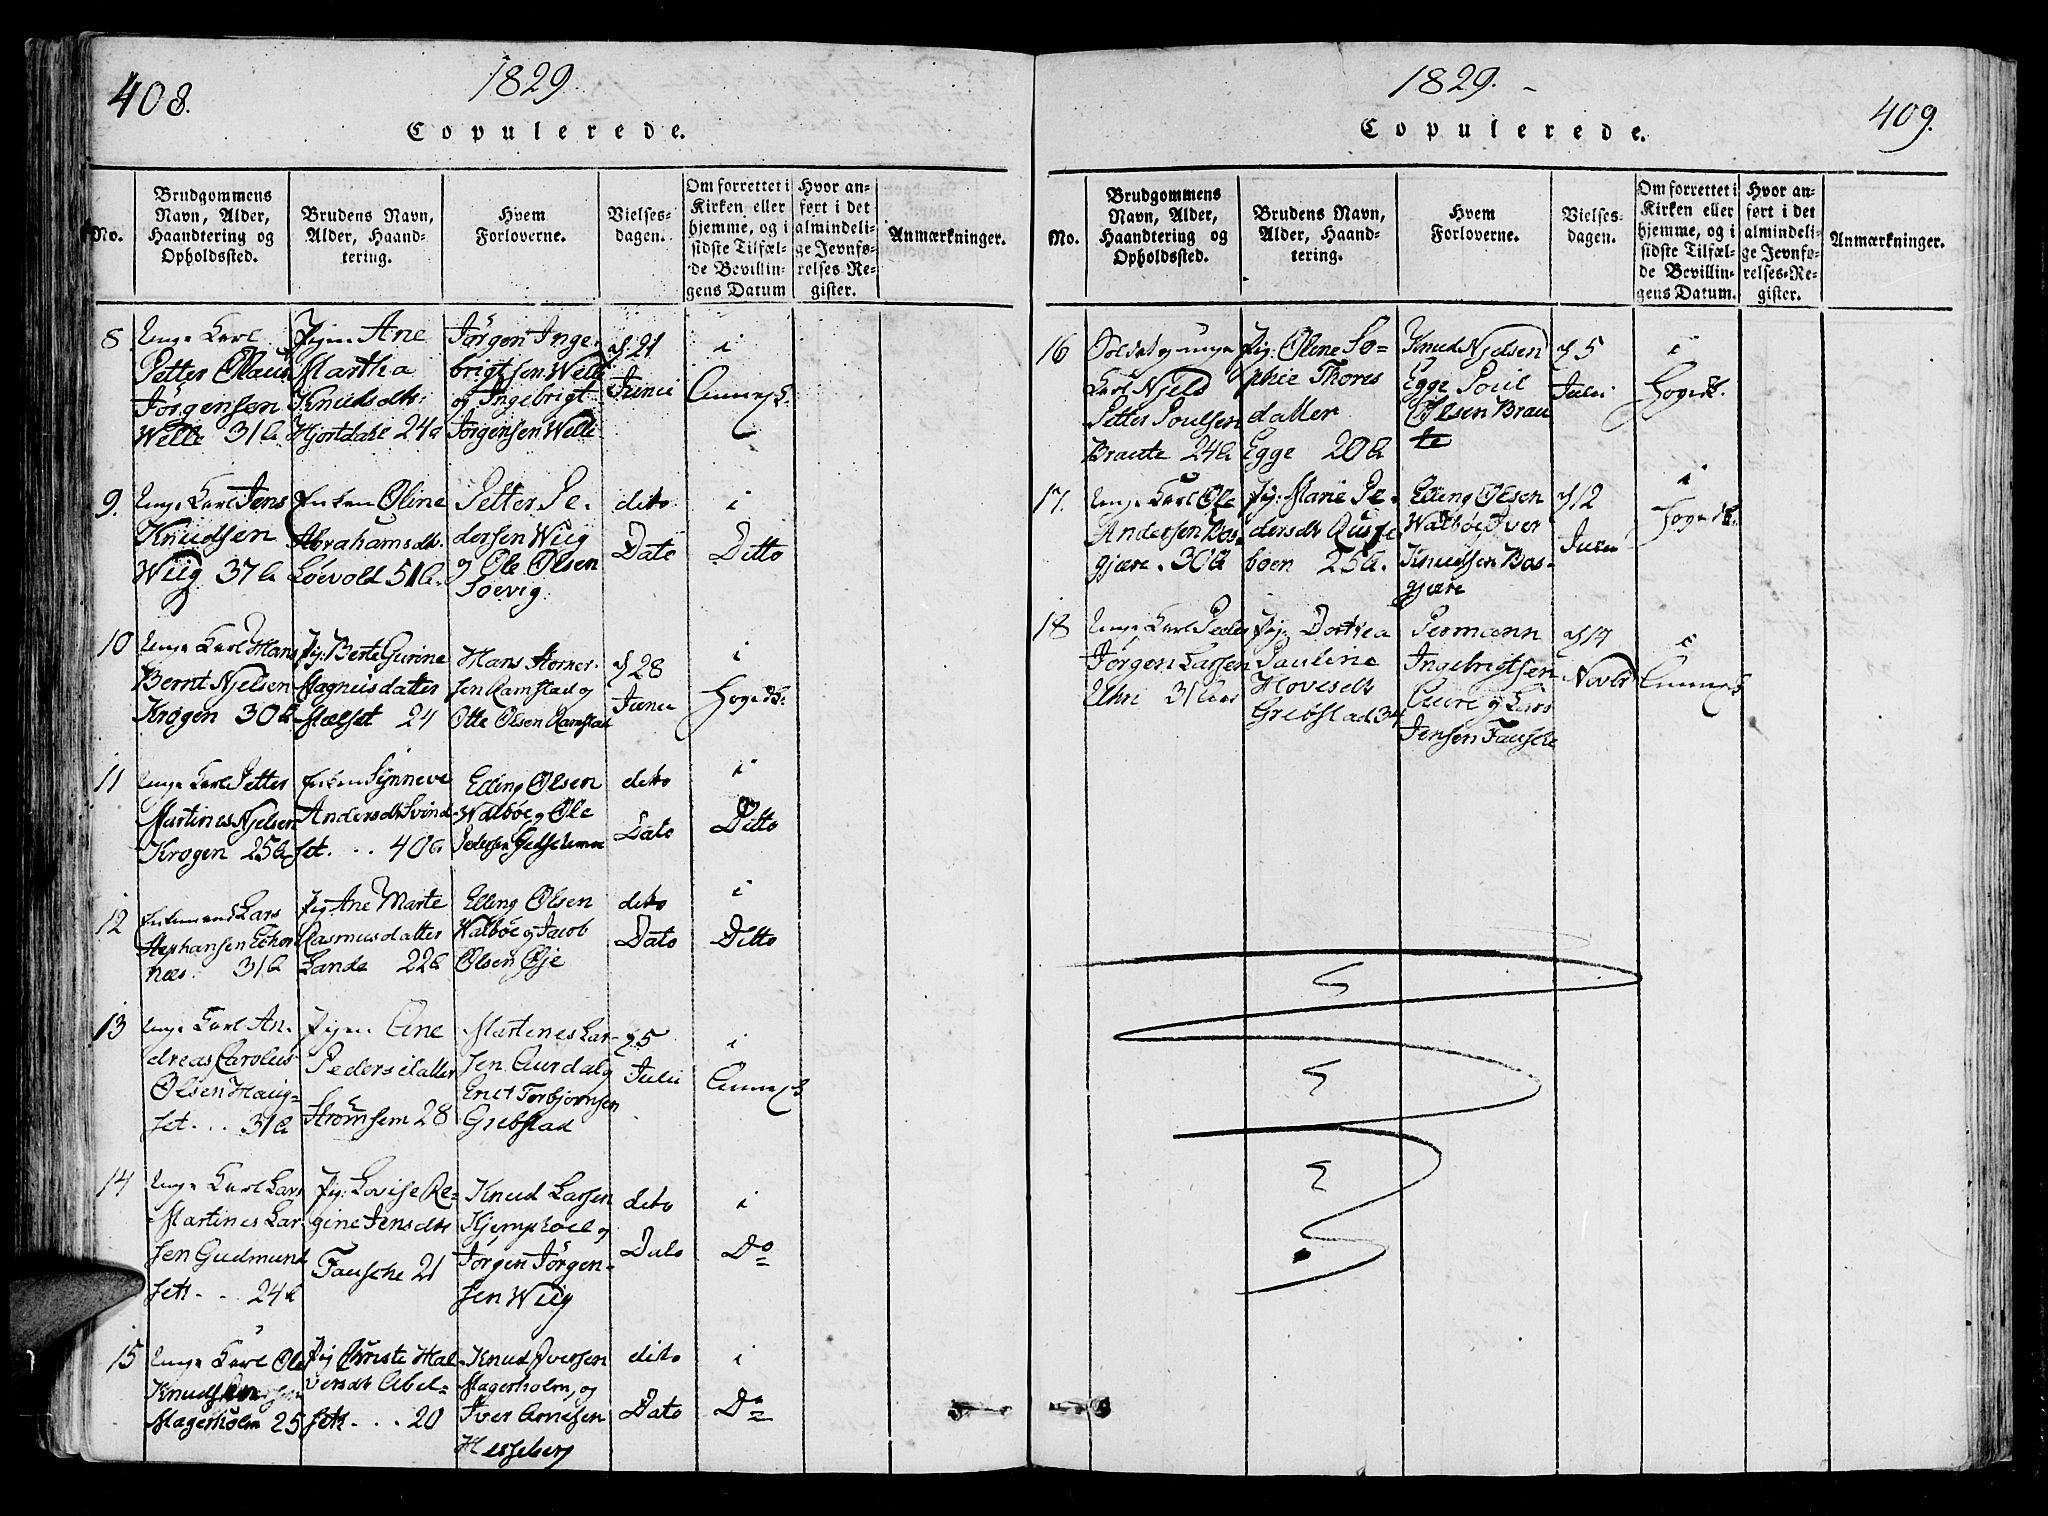 408.
1829
Copulerede.
No.
Brudgommens Navn, Alder, Haandtering og Opholdssted.
Brudens Navn, Alder, Haandtering.
Hvem Forloverne.
Vielses-dagen.
Om forrettet i Kirken eller hjemme, og i sidste Tilfælde Bevillingens Datum
Hvor anført i det almindelige Jevnførelses Register.
Anmærkninger.
8
Unge Karl
Petter Olaus
Jörgensen
Welle 31 A
Pigen Ane
Martha
Knudsdtr:
Hjortdahl 24 a
Jörgen Inge-
brigtsen Welle
og Ingebrigt
Jörgensen Welle
d 21
Junii
i
9.
Unge Karl Jens
Knudsen
Wiig 37 A
Enken Oline
Abrahamsdtr.
Löevold 51 A.
Petter Pe-
dersen Wiig
og Ole Olsen
Soevig
dito
Dato
i
Ditto
10
Unge Karl Hans
Bernt Njelsen
Krogen 30 A
Pig: Berte Gurine
Magnusdatter
Mælset 24
Hans
sen Ramstad og
Otte Olsen Ramstad
d 28
Junii
i
11
Unge Karl Petter
Martines Njelsen
Krogen 25 A
Enken Synneve
Andersdtr Svind-
set . . . 40 a
Elling Olsen
Walböe og Ole
Pedersen
dito
Dato
i
Ditto
12
Enkemand Lars
Stephansen
næs. 31 A
Pig Ane Marte
Rasmusdatter
Lande 22 A
Elling Olsen
Walböe og Jacob
Olsen Øje
dito
Dato
i
Ditto
13
Unge Karl An-
dreas Carolus
Olsen Haug-
set . . . 31 A
Pigen Ane
Pedersdatter
Strömsem 28
Martines Lar-
sen Aurdal og
Enct Torbjörnsen
Grebstad
d 5
Julii
i
14
Unge Karl Lars
Martines Lar-
sen Gudmund
set . . . 24 A
Pig: Lovise Re-
gine Jensdtr
Fausche 21
Knud Larsen
Kjemphoel og
Jörgen Jörgen-
sen Wiig
dito
Dato
i
Do
15
Unge Karl Ole
Knudsen
Magerholm 25
Pig Christe Hal-
versdtr Abel-
set . . . 20
Knud Iversen
Magerholm, og
Iver Arnesen
Hesseberg
dito
Dato
i
Do
1829.
409.
Copulerede.
No.
Brudgommens Navn, Alder, Haandtering og Opholdssted.
Brudens Navn, Alder, Haandtering.
Hvem Forloverne.
Vielses-dagen.
Om forrettet i Kirken eller hjemme, og i sidste Tilfælde Bevillingens Datum.
Hvor anført i det almindelige Jevnførelses-Register.
Anmærkninger.
16
Soldat og unge
Karl Njeld
Petter Poulsen
Braute 24 A
Pig: Oline So-
phie Thores
datter
Egge 20 A
Knud Njelsen
Egge Poul
Olsen Brau
te
d 5
Julii
i
17.
Unge Karl Ole
Andersen Bos-
gjære. 30 A
Pig: Marie Pe-
dersdtr
boen 25 A.
Elling Olsen
Walböe Iver
Knudsen Bos-
gjære
d 12
Julii
i
18
Unge Karl Peder
Jörgen Larsen
Uhri 31 Aar
Pig: Dorthea
Pauline
Hovesdtr
Grebstad 34
Permann
Ingebrigtsen
Aure og Lars
Jensen Fausche
d 17
Novbr
i